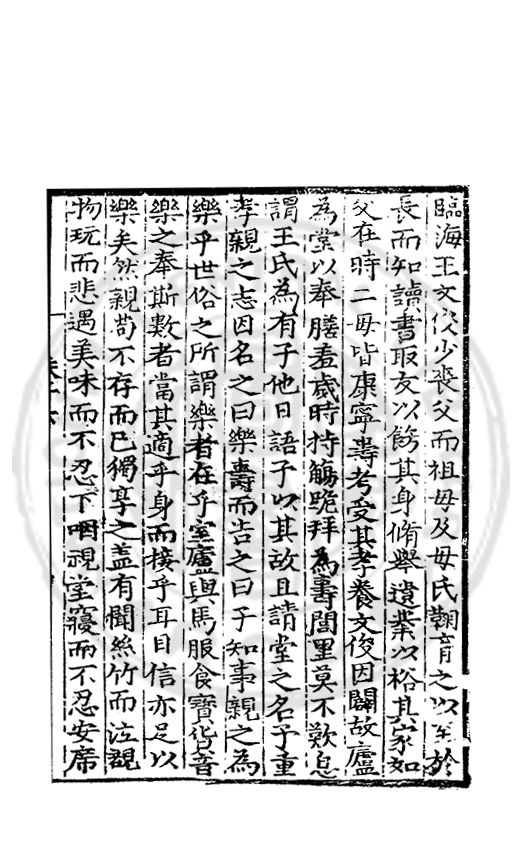 臨海王文俊少喪父而祖母及母氏鞠育之以至於
長而知讀書取友以飭其身脩舉遺業以裕其家如
父在時二母皆康寧壽考受其孝養文俊因闢故廬
為堂以奉膳羞歲時持觴跪拜為壽閭里莫不歎息
謂王氏為有子他日語予以其故且請堂之名予重
孝親之志因名之曰樂壽而告之曰子知事親之為
樂乎世俗之所謂樂者在乎室廬輿馬服食寶貨音
樂之奉斯數者當其適乎身而接乎耳目信亦足以
樂矣然親苟不存而已獨享之盖有聞絲竹而泣覩
物玩而悲遇美味而不忍下咽視堂寢而不忍安席